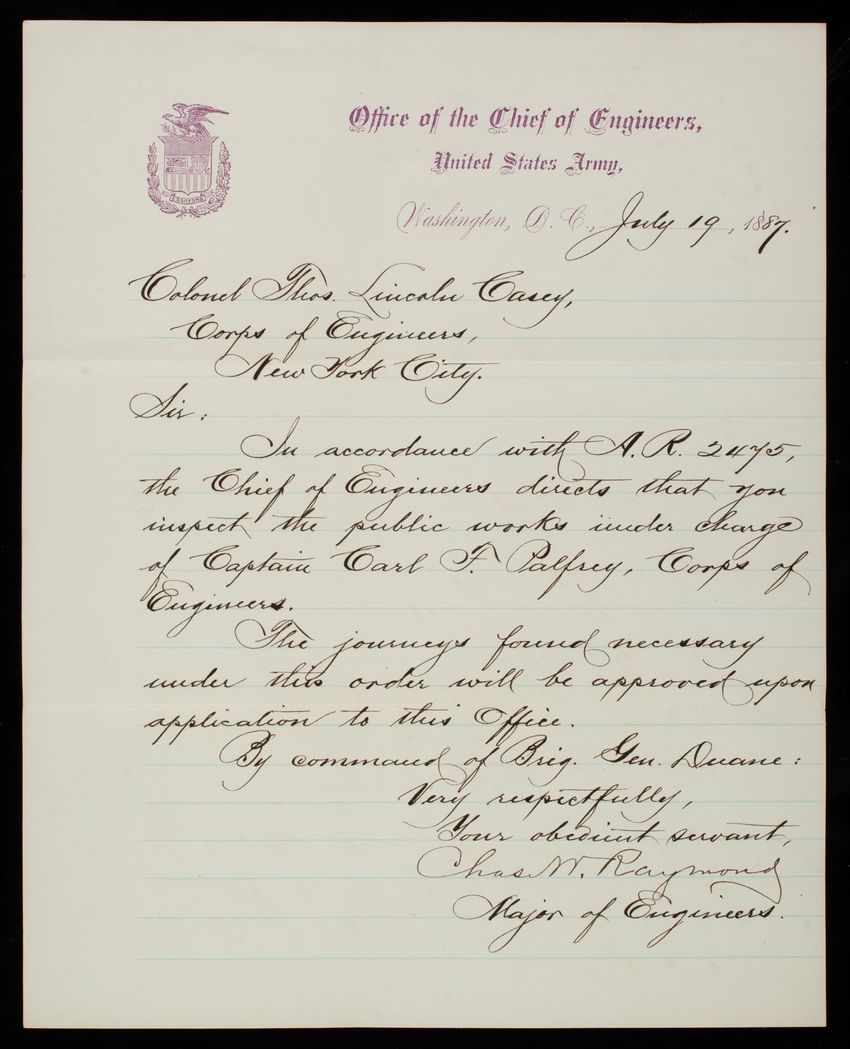 Office of the Chief of Engineers,
United States Army,
Washington, D. C., July 19, 1887.
ESSAYONS
Colonel Thos. Lincoln Casey,
Corps of Engineers,
New York City.
Sir:
In accordance with A. R. 2475,
the Chief of Engineers directs that you
inspect the public works under charge
of Captain Carl F. Palfrey, Corps of
Engineers.
The journeys found necessary
under this order will be approved upon
application to this Office.
By command of Brig. Gen. Duane:
Very respectfully,
Your obedient servant,
Chas. W. Raymond
Major of Engineers.